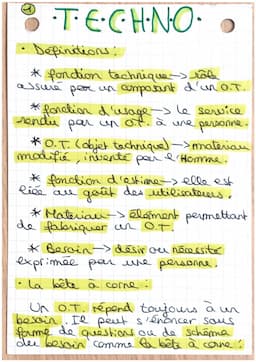 1
T.E.C.H.N.O.
• Définitions :
* fonction technique → rôle
assuré par un composant d'un O.T.
* fonction d'usage → le service
rendu par un O.T. à une personne.
* O.T. (objet technique) → materiau
modifié, inventé par l'Homme.
* fonction d'estime → elle est
liée au goût des utilisateurs.
* Materiau → élément permettant
de fabriquer un O.T.
* Besoin → désir ou nécessité
exprimée par une personne.
• La bête à corne :
Un O.T. répond toujours à un
besoin. Il peut s'énoncer sous
forme de questions ou de schéma
du besoin comme la bête à corne :